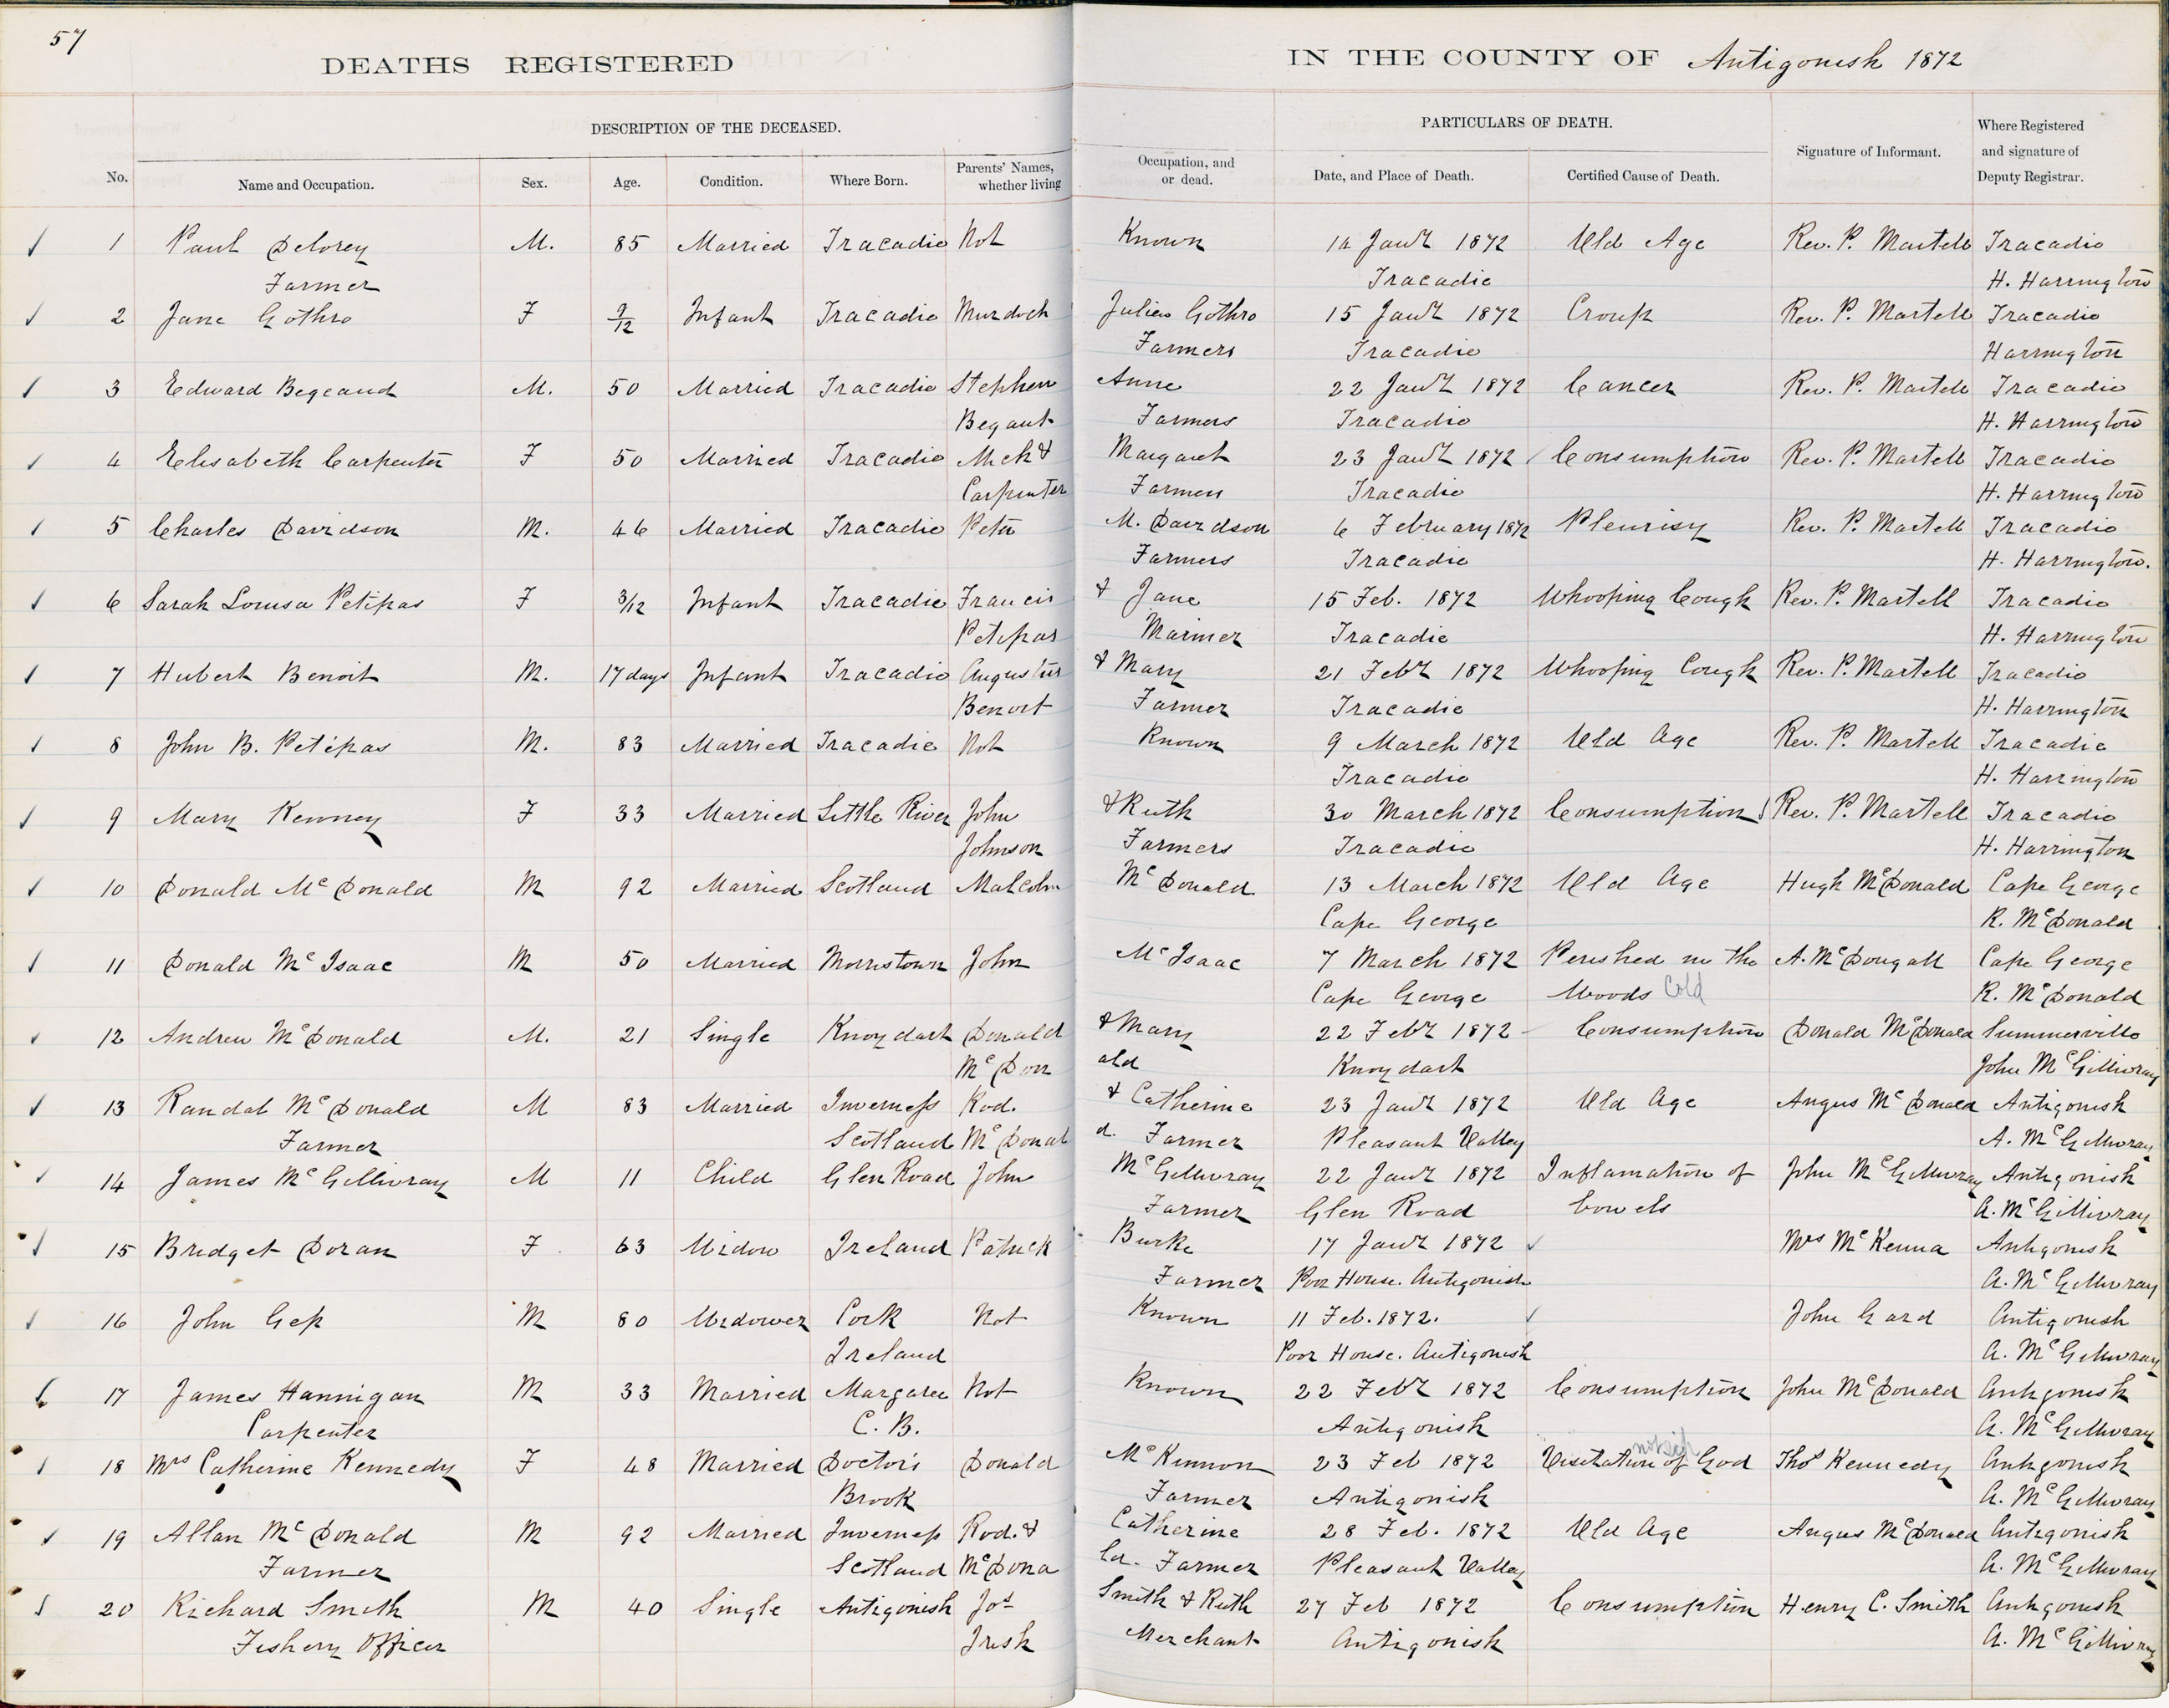 57
DEATHS REGISTERED IN THE COUNTY OF Antigonish 1872
DESCRIPTION OF THE DECEASED. PARTICULARS OF DEATH.
No. Name and Occupation. Sex. Age. Condition. Where Born. Parents' Names, whether living Occupation, and or dead. Date, and Place of Death. Certified Cause of Death. Signature of Informant. Where Registered and signature of Deputy Registrar.
1 Paul Delorey M. 85 Married Tracadie Not Known 14 Jany 1872 Old Age Rev. P. Martell Tracadie
Farmer Tracadie H. Harrington
2 Jane Gothro F 9/12 Infant Tracadie Murdoch Julien Gothro 15 Jany 1872 Croup Rev. P. Martell Tracadie
Farmers Tracadie Harrington
3 Edward Begeaud M. 50 Married Tracadie Stephen Anne 22 Jany 1872 Cancer Rev. P. Martell Tracadie
Begaut Farmers Tracadie H. Harrington
4 Elisabeth Carpenter F 50 Married Tracadie Mick & Margaret 23 Jany 1872 Consumption Rev. P. Martell Tracadie
Carpenter Farmers Tracadie H. Harrington
5 Charles Davidson M. 46 Married Tracadie Peter M. Davidson 6 February 1872 Pleurisy Rev. P. Martell Tracadie
Farmers Tracadie H. Harrington.
6 Sarah Louisa Petipas F 3/12 Infant Tracadie Francis & Jane 15 Feb. 1872 Whooping Cough Rev. P. Martell Tracadie
Petipas Mariner Tracadie H. Harrington
7 Hubert Benoit M. 17 days Infant Tracadie Augustus & Mary 21 Feby 1872 Whooping Cough Rev. P. Martell Tracadie
Benoit Farmer Tracadie H. Harrington
8 John B. Petipas M. 83 Married Tracadie Not Known 9 March 1872 Old Age Rev. P. Martell Tracadie
Tracadie H. Harrington
9 Mary Kenney F 33 Married Little River John & Ruth 30 March 1872 Consumption Rev. P. Martell Tracadie
Johnson Farmers Tracadie H. Harrington
10 Donald McDonald M 92 Married Scotland Malcolm McDonald 13 March 1872 Old Age Hugh McDonald Cape George
Cape George R. McDonald
11 Donald McIsaac M 50 Married Morristown John McIsaac 7 March 1872 Perished in the A. McDougall Cape George
Cape George Woods Cold R. McDonald
12 Andrew McDonald M. 21 Single Knoydart Donald & Mary 22 Feby 1872 Consumption Donald McDonald Summerville
McDon ald Knoydart John McGillivray
13 Randal McDonald M 83 Married Inverness Rod. & Catherine 23 Jany 1872 Old Age Angus McDonald Antigonish
Farmer Scotland McDonal d. Farmer Pleasant Valley A. McGillivray
14 James McGillivray M 11 Child Glen Road John McGillivray 22 Jany 1872 Inflamation of John McGillivray Antigonish
Farmer Glen Road bowels A. McGillivray
15 Bridget Doran F 63 Widow Ireland Patrick Burke 17 Jany 1872 Mrs McKenna Antigonish
Farmer Poor House. Antigonish A. McGillivray
16 John Gep M 80 Widower Cork Not Known 11 Feb. 1872. John Gard Antigonish
Ireland Poor House. Antigonish A. McGillivray
17 James Hannigan M 33 Married Margaree Not Known 22 Feby 1872 Consumption John McDonald Antigonish
Carpenter C. B. Antigonish A. McGillivray
18 Mrs Catherine Kennedy F 48 Married Doctor's Donald McKinnon 23 Feb 1872 Visitation of God Thos Kennedy Antigonish
Brook Farmer Antigonish A. McGillivray
19 Allan McDonald M 92 Married Inverness Rod. & Catherine 28 Feb. 1872 Old Age Angus McDonald Antigonish
Farmer Scotland McDona ld. Farmer Pleasant Valley A. McGillivray
20 Richard Smith M 40 Single Antigonish Jos Smith & Ruth 27 Feb 1872 Consumption Henry C. Smith Antigonish
Fishery Officer Irish Merchant Antigonish A. McGillivray